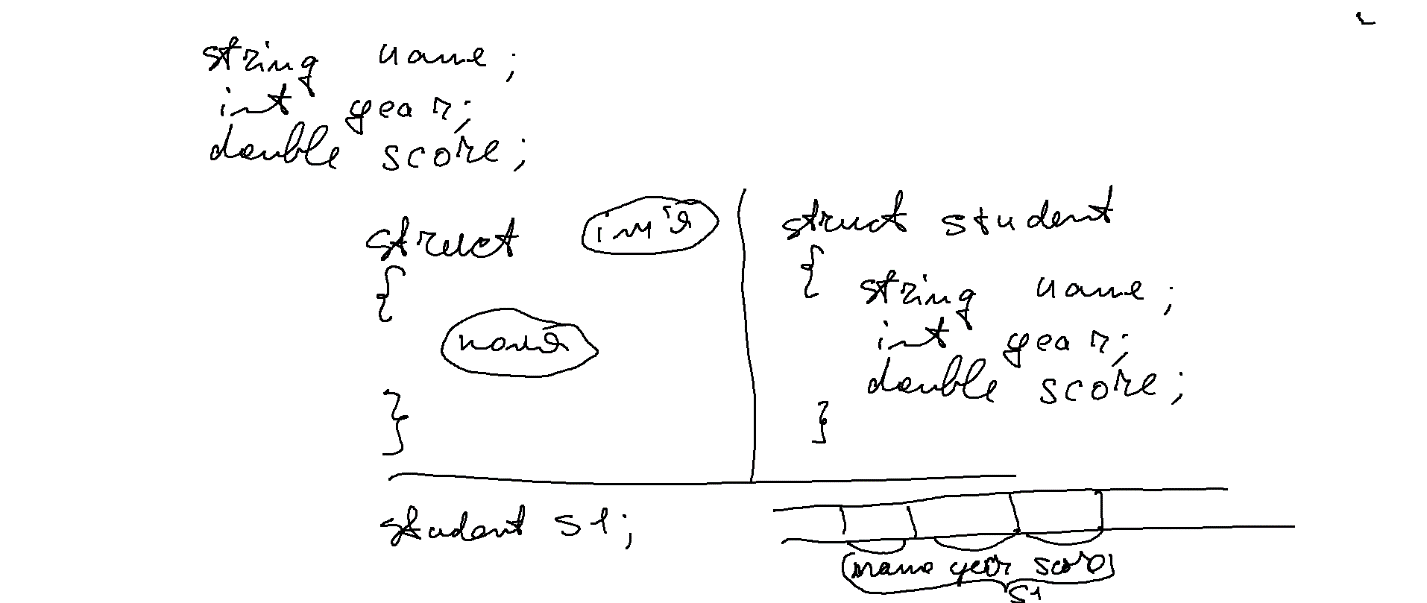 string name;
int year;
double score;
struct ім'я
{
поля
}
struct student
{
string name;
int year;
double score;
}
student s1;
name year score
s1